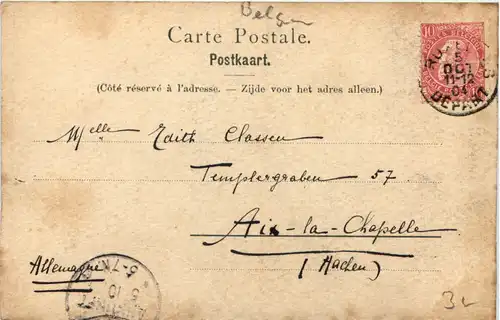 Belgien
Carte Postale.
Postkaart.
(Côté réservé à l'adresse. — Zijde voor het adres alleen.)
10
5
OCT
11-12
04
DEPART
Melle Edith Classen
Templergraben 57
Aix-la-Chapelle
(Aachen)
Allemagne
3-